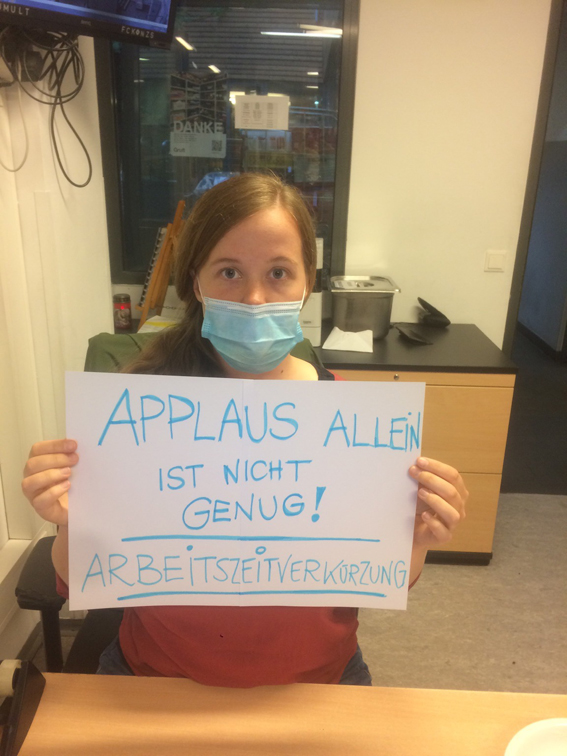 DANKE
APPLAUS ALLEIN
IST NICHT
GENUG!
ARBEITSZEITVERKÜRZUNG